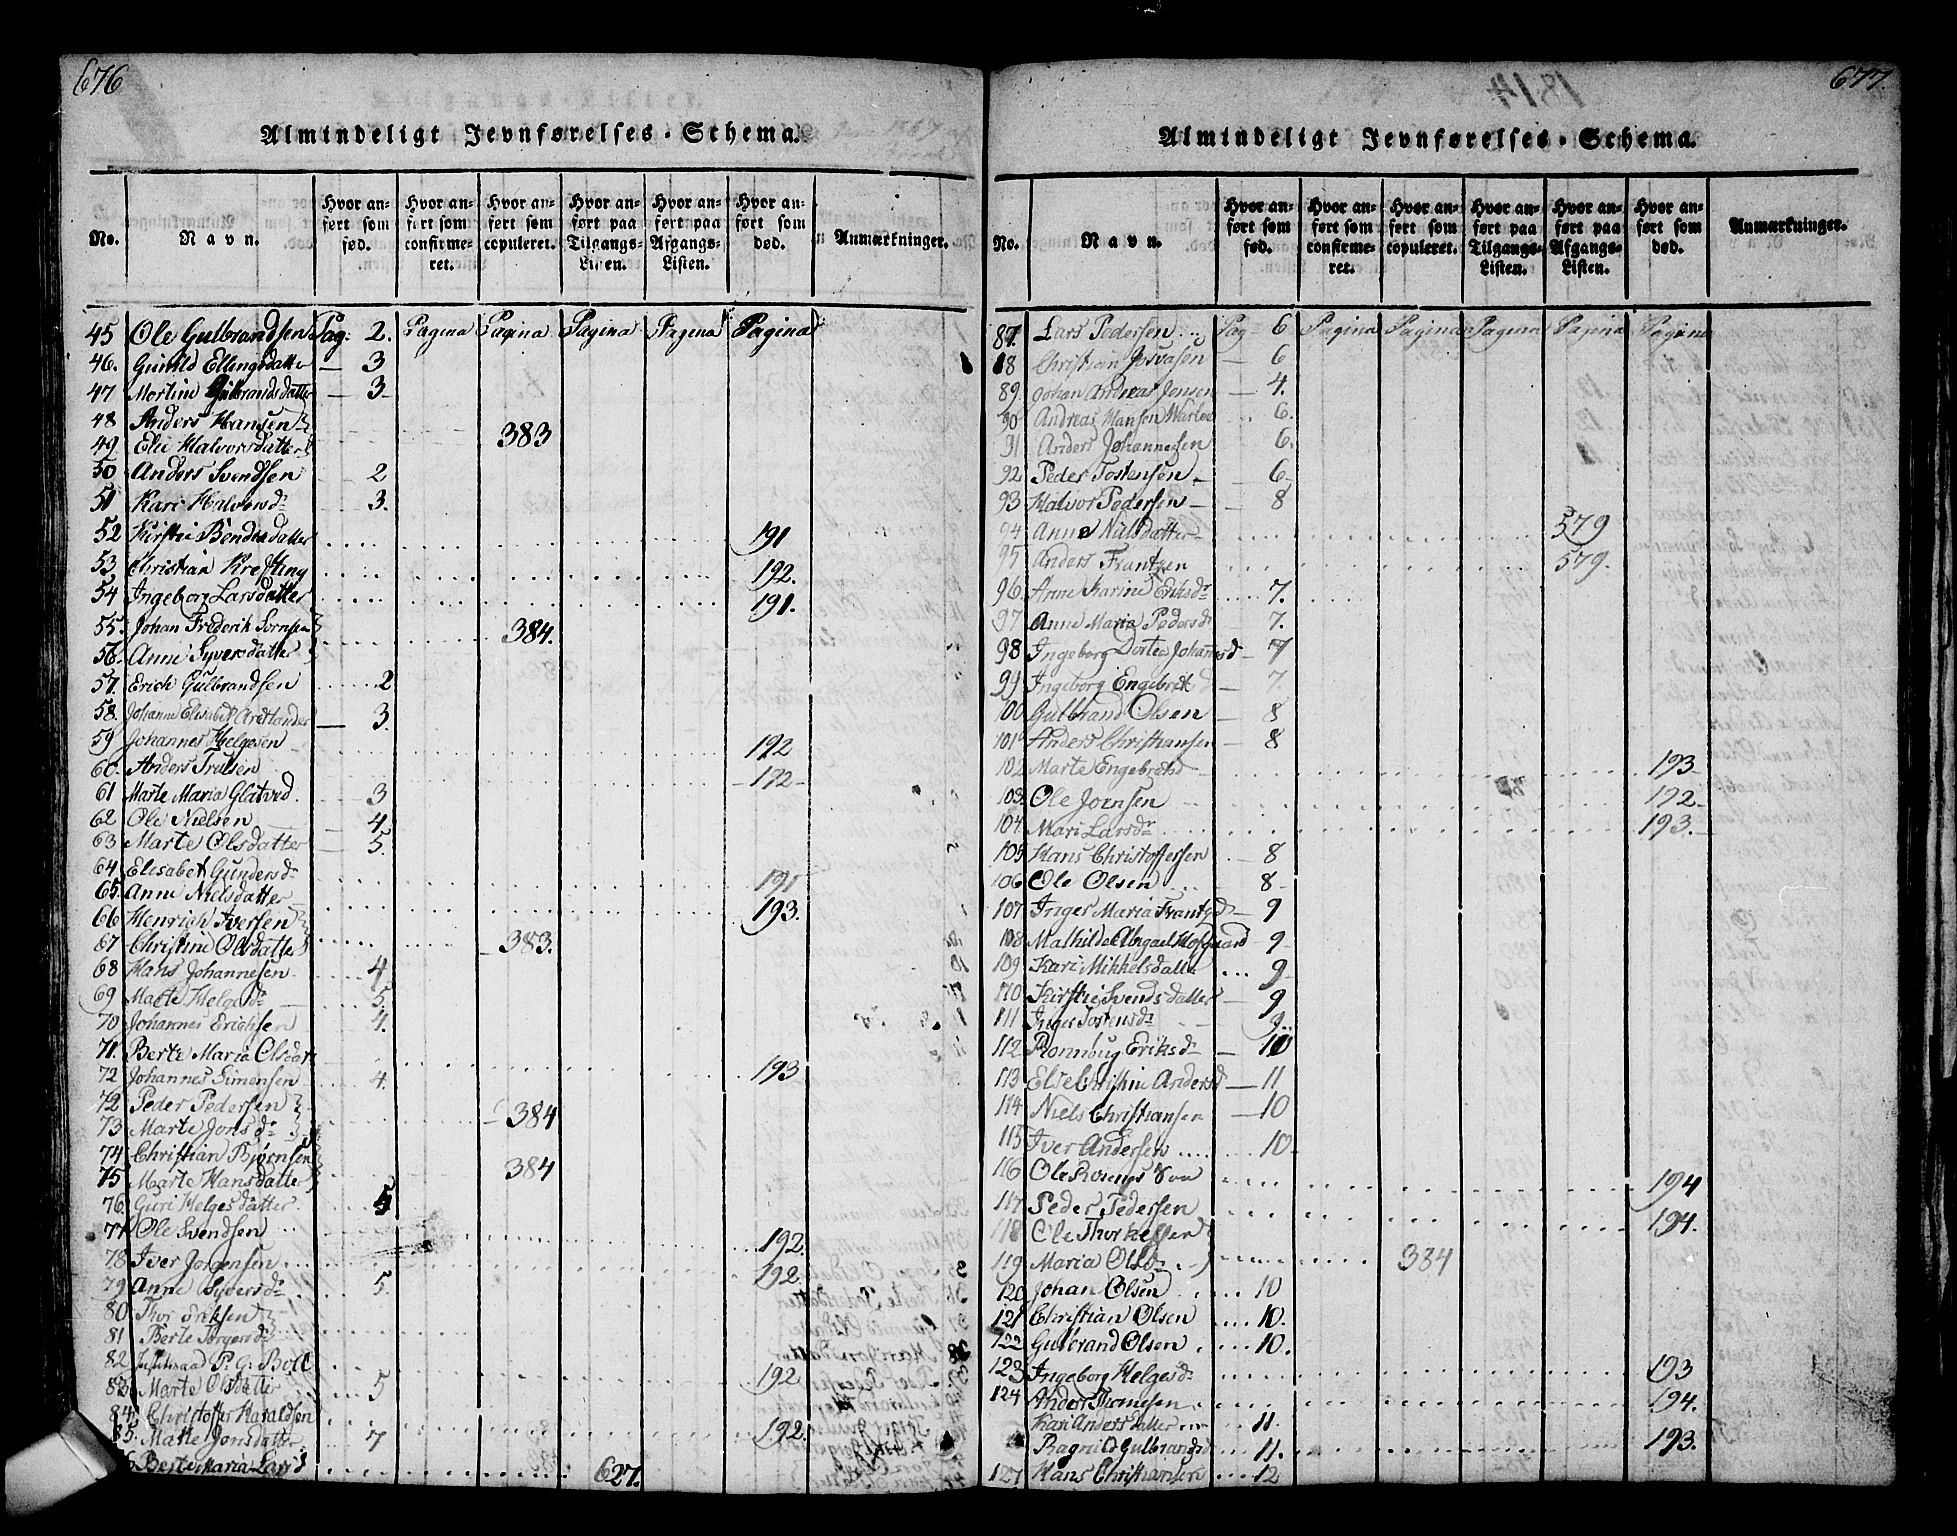 676
Almindeligt Jevnførelses-Schema.
No. Navn. Hvor anført som fød. Hvor anført som confirmeret. Hvor anført som copuleret. Hvor anført paa Tilgangs-Listen. Hvor anført paa Afgangs-Listen. Hvor anført som død. Anmærkninger.
45 Ole Gulbrandsen Pag: 2. Pagina Pagina Pagina Pagina Pagina
46. Gunild Ellingsdatter 3
47 Mortine Gulbrandsdatter 3
48 Anders Hansen
49 Elie Halvorsdatter 383
50 Anders Svendsen 2
51 Kari Halvorsdr 3.
52 Kirstie Bendtsdatter 191
53 Christian Krefting 192.
54 Ingeborg Larsdatter 191.
55. Johan Friderik Sørnsen 384.
56. Anne Syversdatter
57. Erich Gulbrandsen 2
58. Johanne Elisabet 3.
59 Johannes Helgesen 192
60. Anders Trulsen 192
61 Marte Maria Glatved 3
62 Ole Nielsen 4
63 Marte Olsdatter 5.
64 Elisabet Gundersdr 191
65. Anne Nielsdatter 193.
66 Henrich Iversen
67 Christine Olsdatter 383.
68 Hans Johannesen 4
69 Marte Helgesdr 5.
70 Johannes Erichsen 4.
71. Berte Maria Olsdatr 193
72 Johannes Simensen 4.
72 Peder Pedersen 384
73 Marte Jonsdr
74 Christian Bjørnsen
75 Marte Hansdatter 384
76. Guri Helgesdatter 5
77 Ole Svendsen 192.
78 Iver Jorgensen 192.
79 Anne Syversdr 5.
80 Thor Eriksen
81 Berte
82 P. G. Boll 192
83. Marte Olsdatter 5
84. Christoffer Haraldsen 192.
85. Marte Jonsdatter 7
Berte Maria Larsd 627.
677.
Almindeligt Jevnførelses-Schema.
No. Navn. Hvor anført som fød. Hvor anført som confirmeret. Hvor anført som copuleret. Hvor anført paa Tilgangs-Listen. Hvor anført paa Afgangs-Listen. Hvor anført som død. Anmærkninger.
87. Lars Pedersen Pag 6 Pagina Pagina Pagina Pagina Pagina
88 Christian Josvasen 6
89. Johan Andreas Jensen 4.
90 Andreas Hansen 6.
91 Anders Johannesen 6.
92 Peder Tostensen 6
93 Halvor Pedersen 8
94 Anne Nilsdatter 579
95 Anders Frantzen 579.
96. Anne Karine Eriksdr 7.
97 Anne Maria Pedersdr 7.
98 Ingeborg Dortea Johannesd 7
99 Ingeborg Engebret d 7.
100 Gulbrand Olsen 8
101 Anders Christiansen 8
102 Marte Engebretsd 193
103. Ole Jornsen 192
104. Mari Larsdr 193.
105 Hans Christoffersen 8
106 Ole Olsen 8
107 Inger Maria Frantzd 9
108 Mathilde Abigael Hofgaard 9
109 Kari Mikkelsdatter 9
110 Kirstie Svendsdatter 9
111 Inger Tostensdr 9
112 Ronnbug Eriksd 10
113 Else Christin Andersd 11
114 Niels Christiansen 10
115 Iver Andersen 10
116 Ole 194
117 Peder Pedersen 194.
118 Ole Thorkelsen
119 Maria Olsdr 334
120 Johan Olsen 10
121 Christian Olsen 10.
122 Gulbrand Olsen 10.
123 Ingeborg Helgesdr 193
124 Anders Thomesen 194.
Kari Andersdatter 11.
Ragnild Gulbrandsd 11. 193.
127 Hans Christiansen 12